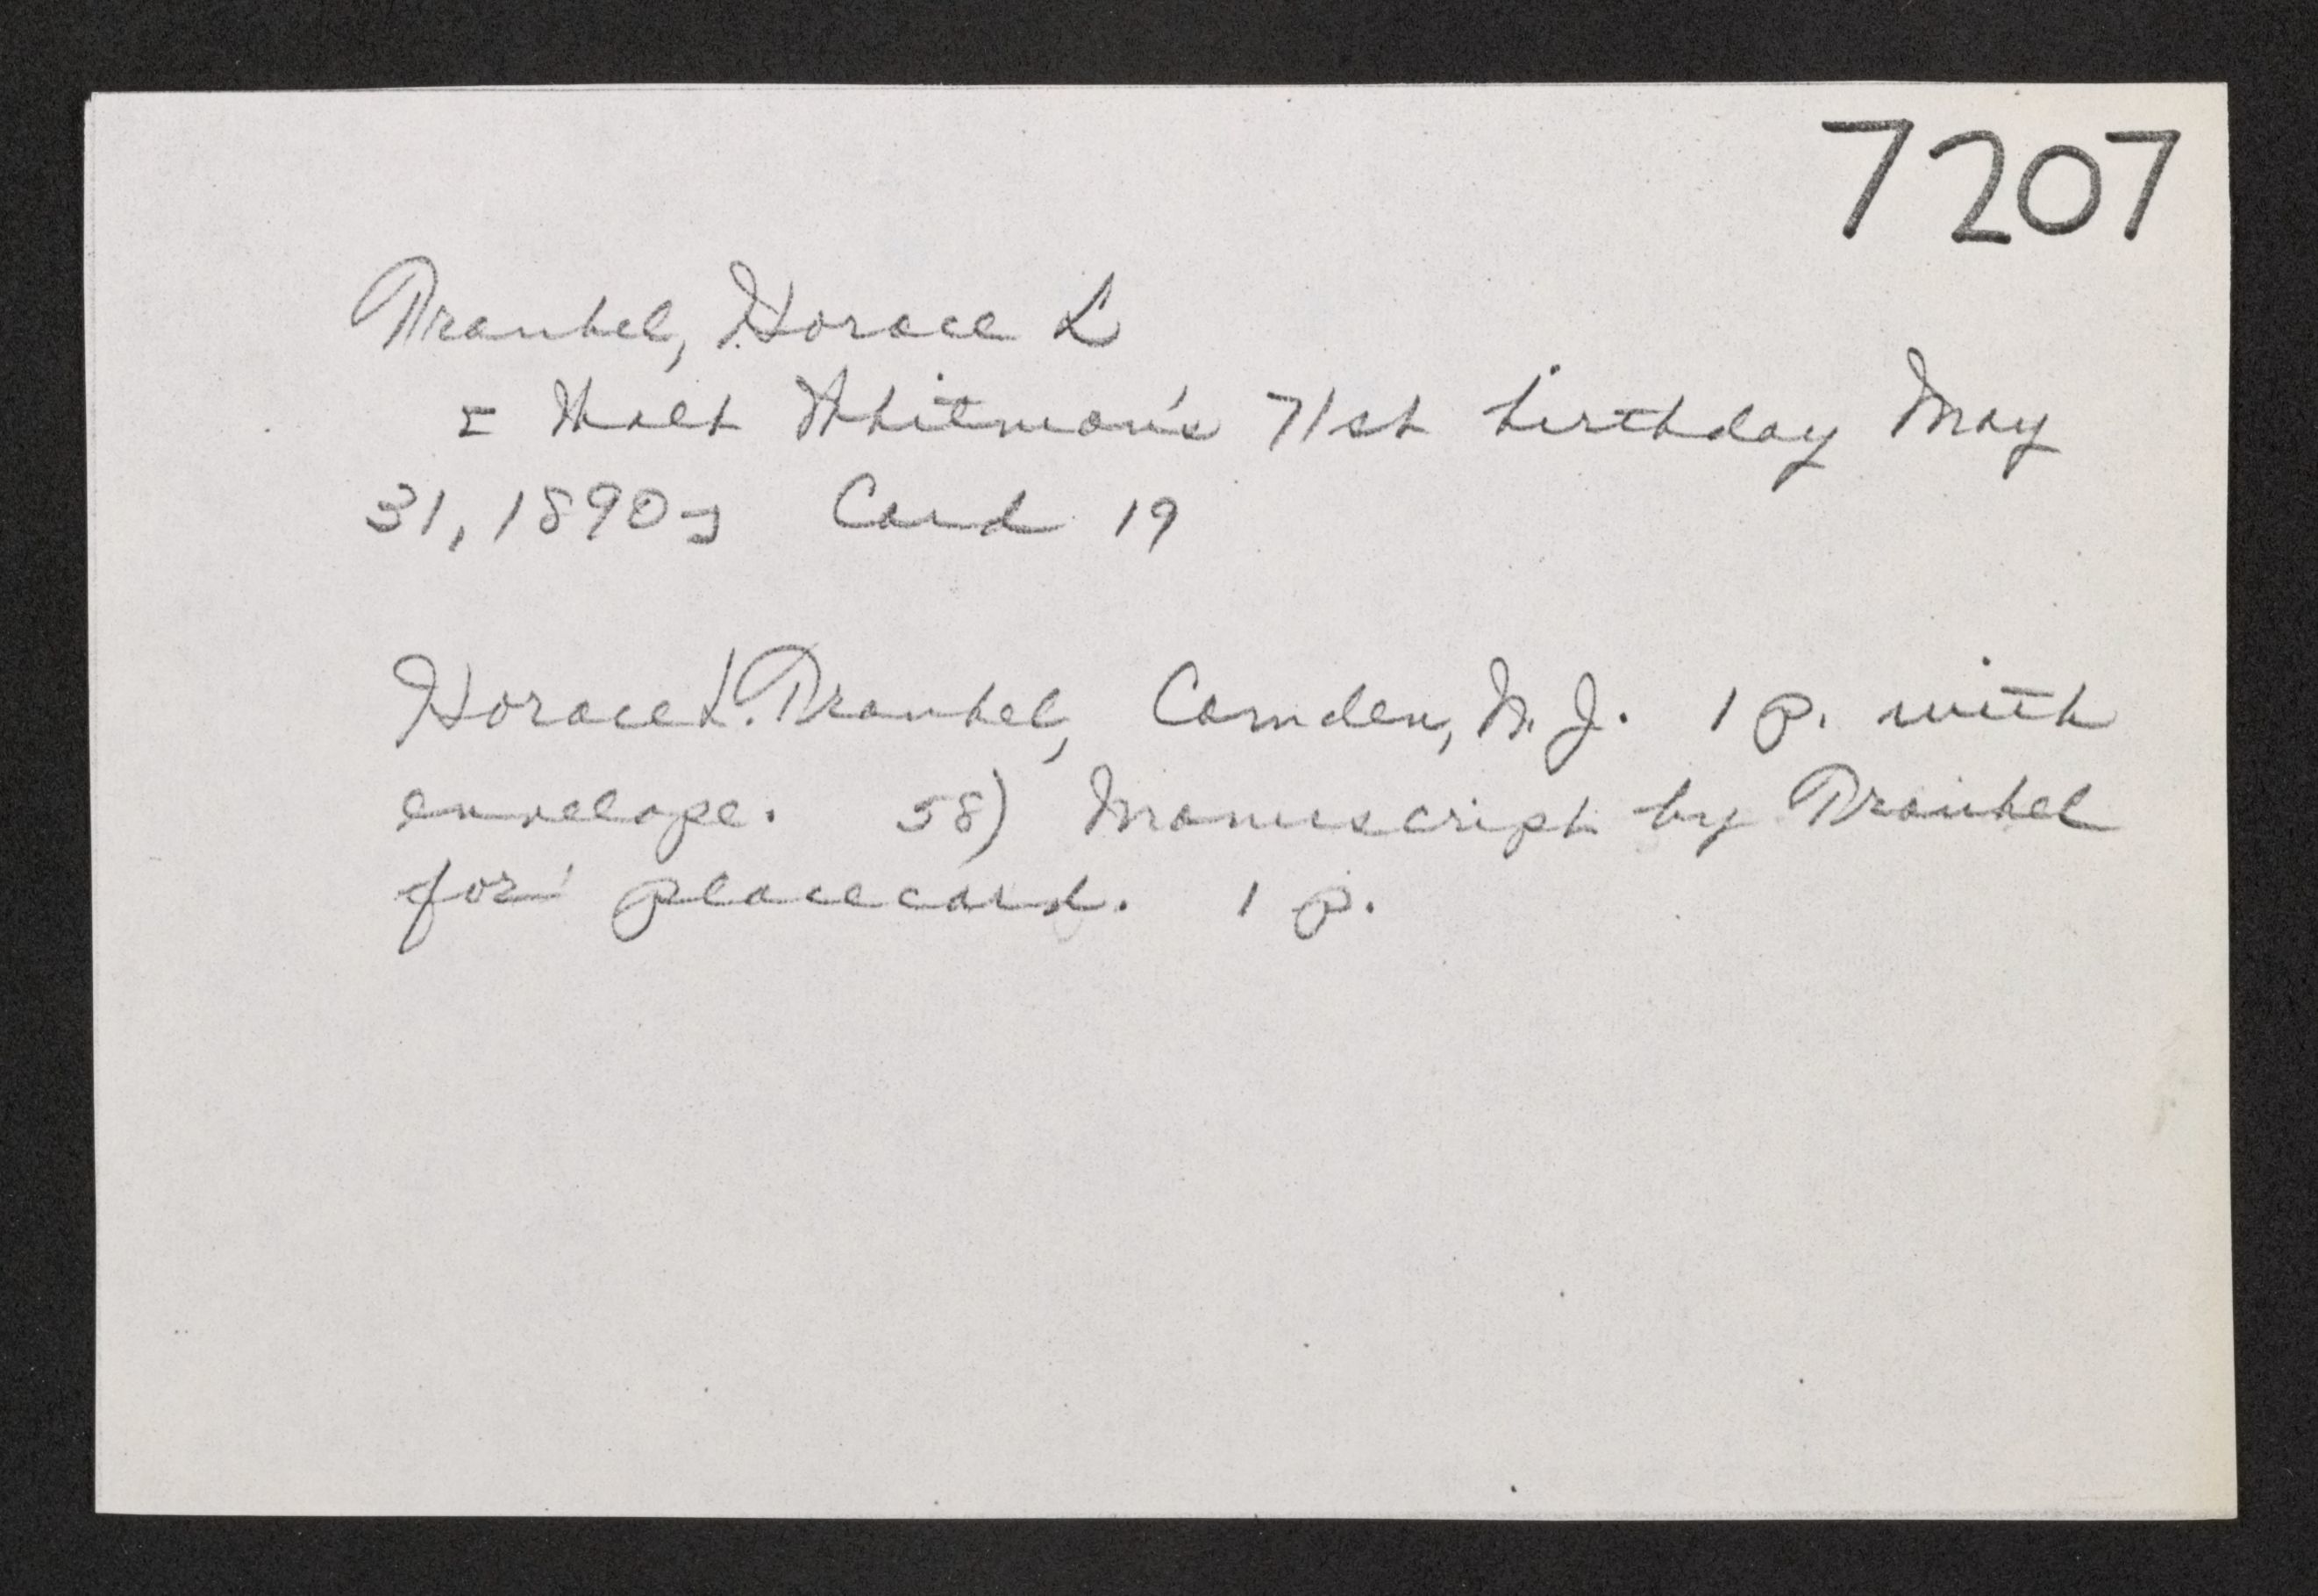 7207
Traubel, Horace L
[Walt Whitman's 71st birthday May
31, 1890] Card 19
Horace L. Traubel, Camden, N.J. 1 p. with
envelope. 58) Manuscript by Traubel
for placecard. 1 p.